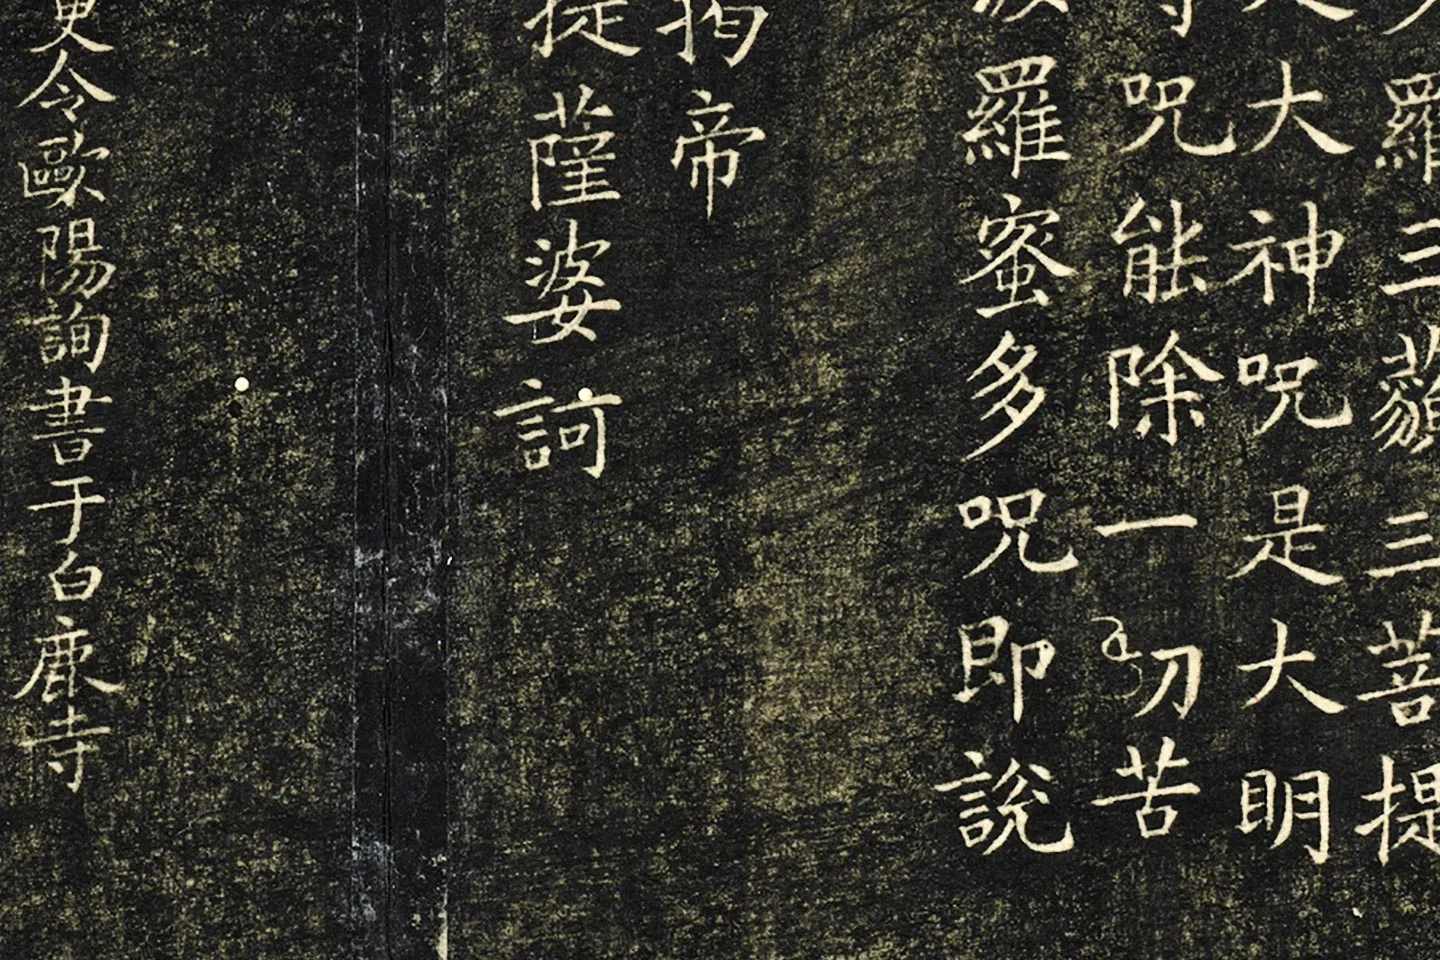 羅三藐三菩提
大神呪是大眀
呪能除一切苦
羅蜜多呪即說
帝
提薩婆訶
更令歐陽詢書于白鹿寺